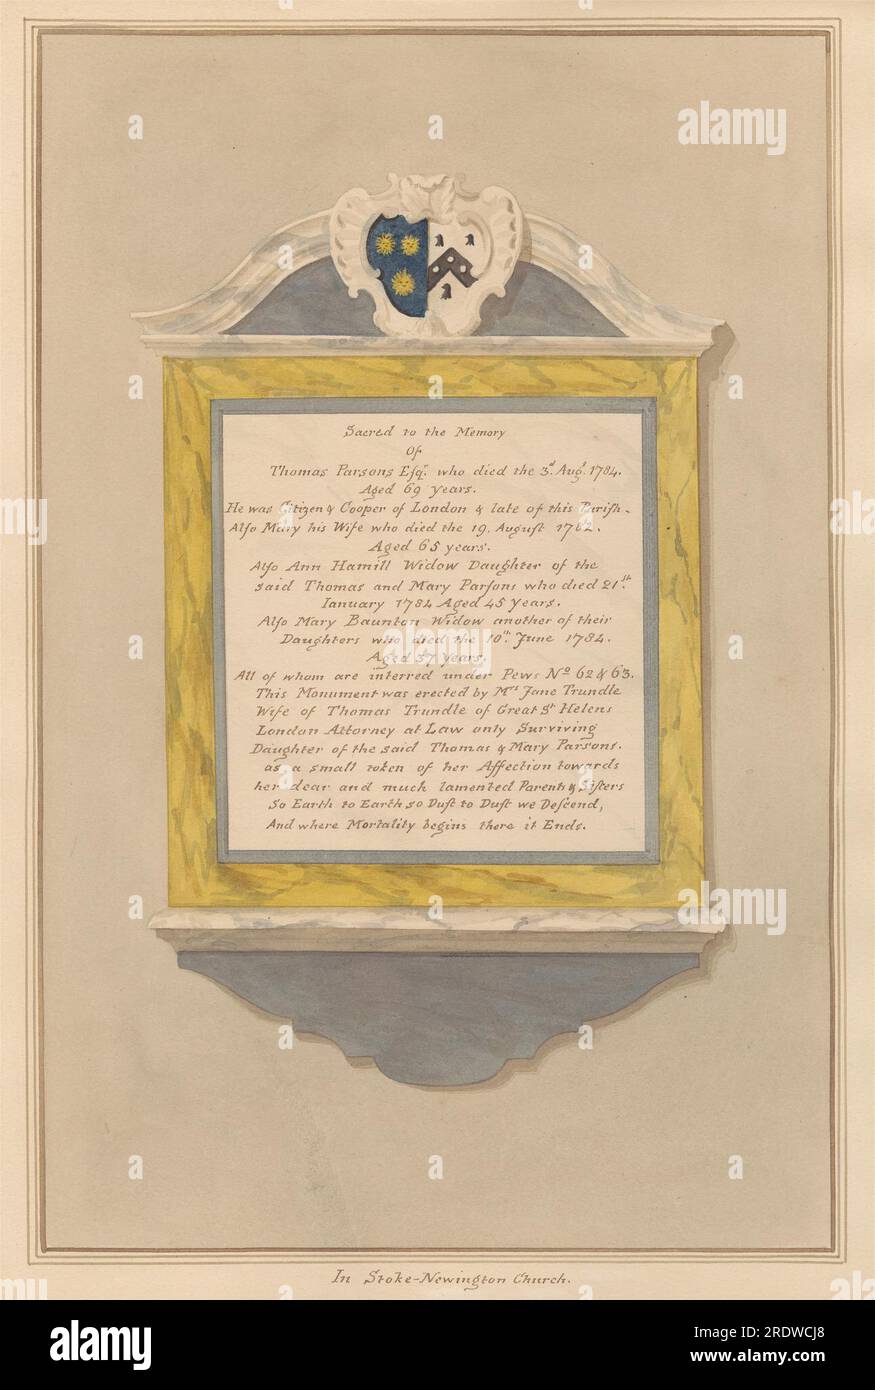 Sacred to the Memory
Of
Thomas Parsons Eſqr. who died the 3d. Augt. 1784.
Aged 69 years.
He was Citizen & Cooper of London & late of this Pariſh.
Alſo Mary his Wife who died the 19. Auguſt 1762.
Aged 65 years.
Alſo Ann Hamill Widow Daughter of the
said Thomas and Mary Parſons who died 21st.
Ianuary 1784 Aged 45 Years.
Alſo Mary Baunton Widow another of their
Daughters who died the 10th. June 1784.
Aged 37 Years.
All of whom are interred under Pews No 62 & 63.
This Monument was erected by Mrs Jane Trundle
Wife of Thomas Trundle of Great St Helens
London Attorney at Law only Surviving
Daughter of the said Thomas & Mary Parsons.
as a small token of her Affection towards
her dear and much lamented Parents & Siſters
So Earth to Earth so Duſt to Duſt we Deſcend,
And where Mortality begins there it Ends.
In Stoke-Newington Church.
alamy
Image ID: 2RDWCJ8
www.alamy.com